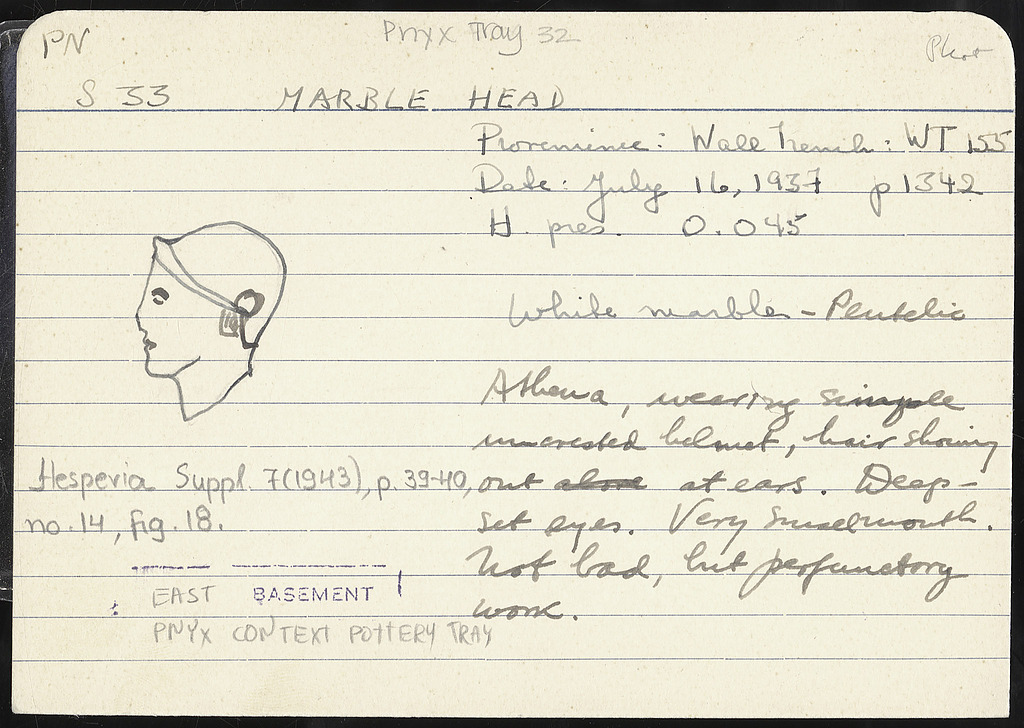 PN
Pnyx Tray 32
Phot
S 33 MARBLE HEAD
Provenience: Wall Trench: WT 155
Date: July 16, 1937 p 1342
H. pres. 0.045
White marble - Pentelic
Athena, wearing simple
uncrested helmet, hair showing
out above at ears. Deep-
set eyes. Very small mouth.
Not bad, but perfunctory
work.
Hesperia Suppl. 7(1943), p. 39-40,
no. 14, fig. 18.
EAST BASEMENT
PNYX CONTEXT POTTERY TRAY